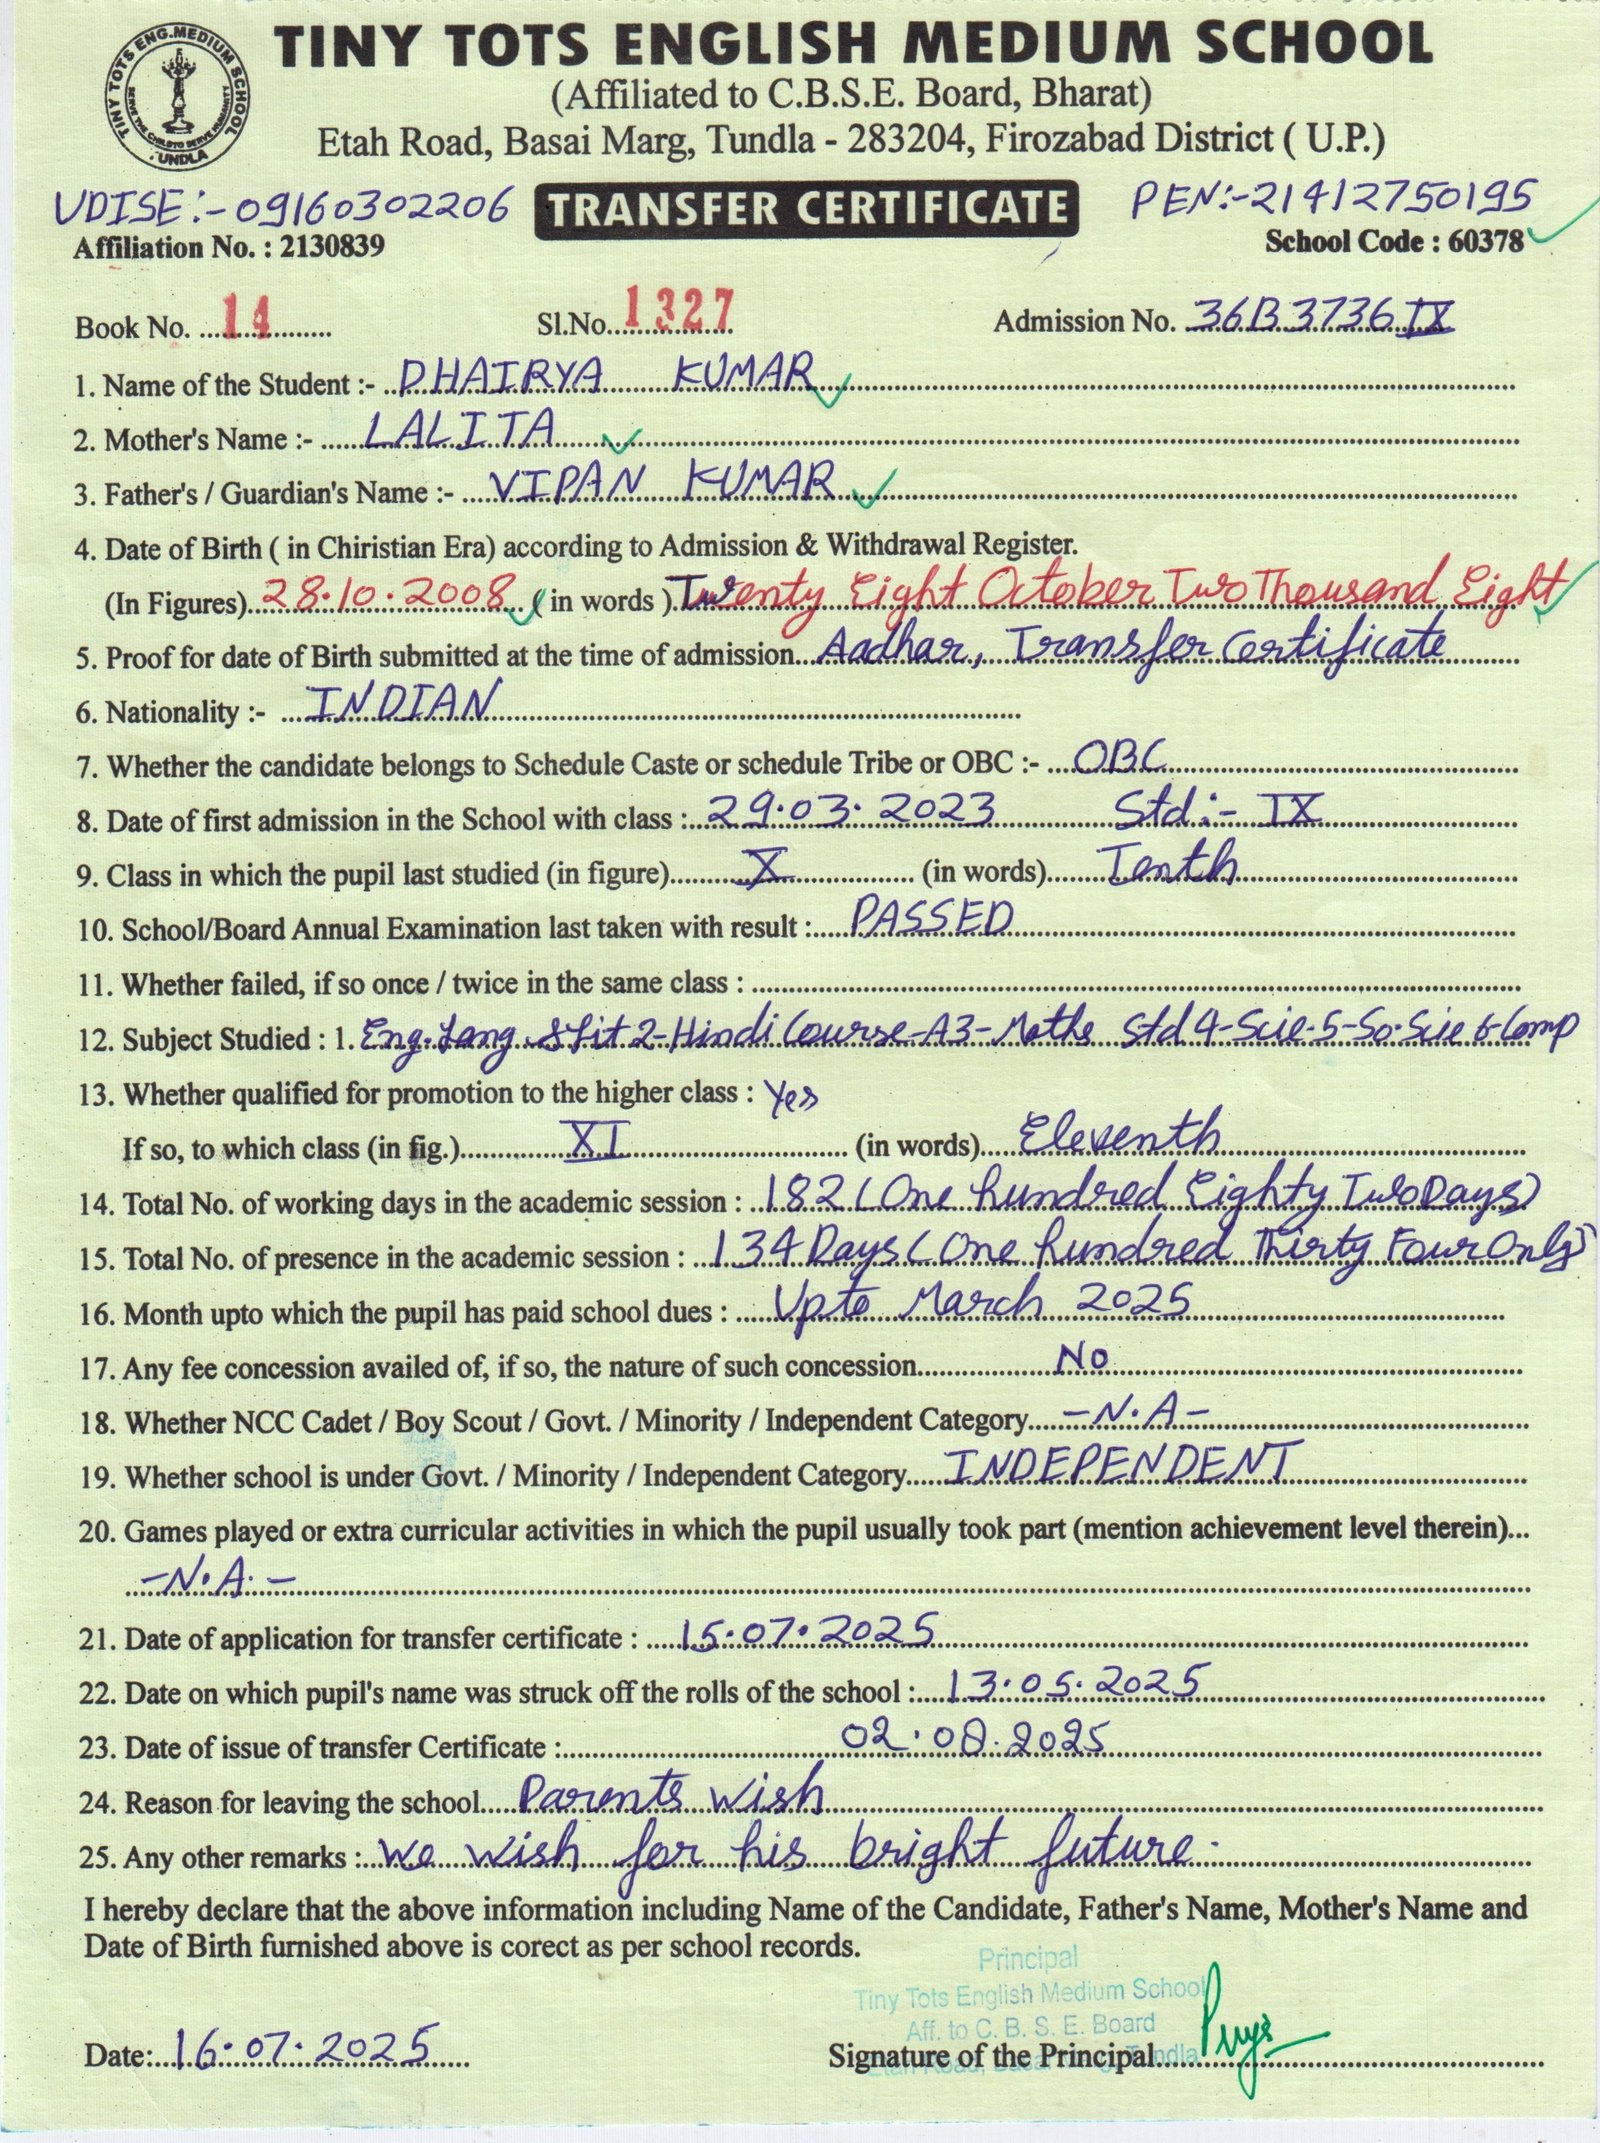 TINY TOTS ENG.MEDIUM SCHOOL
TUNDLA
TINY TOTS ENGLISH MEDIUM SCHOOL
(Affiliated to C.B.S.E. Board, Bharat)
Etah Road, Basai Marg, Tundla - 283204, Firozabad District ( U.P.)
UDISE:-09160302206 TRANSFER CERTIFICATE PEN:-21412750195
Affiliation No. : 2130839 School Code : 60378
Book No. 14 Sl.No. 1327 Admission No. 36B3736 IX
1. Name of the Student :- DHAIRYA KUMAR
2. Mother's Name :- LALITA
3. Father's / Guardian's Name :- VIPAN KUMAR
4. Date of Birth ( in Chiristian Era) according to Admission & Withdrawal Register.
(In Figures) 28.10.2008 ( in words ) Twenty Eight October Two Thousand Eight
5. Proof for date of Birth submitted at the time of admission Aadhar, Transfer Certificate
6. Nationality :- INDIAN
7. Whether the candidate belongs to Schedule Caste or schedule Tribe or OBC :- OBC
8. Date of first admission in the School with class : 29.03.2023 Std:- IX
9. Class in which the pupil last studied (in figure) X (in words) Tenth
10. School/Board Annual Examination last taken with result : PASSED
11. Whether failed, if so once / twice in the same class :
12. Subject Studied : 1. Eng. Lang & Lit 2-Hindi Course-A 3-Maths Std 4-Scie-5-So.Scie 6-Comp
13. Whether qualified for promotion to the higher class : Yes
If so, to which class (in fig.) XI (in words) Eleventh
14. Total No. of working days in the academic session : 182 (One hundred Eighty Two Days)
15. Total No. of presence in the academic session : 134 Days (One hundred Thirty Four Only)
16. Month upto which the pupil has paid school dues : Upto March 2025
17. Any fee concession availed of, if so, the nature of such concession No
18. Whether NCC Cadet / Boy Scout / Govt. / Minority / Independent Category -N.A-
19. Whether school is under Govt. / Minority / Independent Category INDEPENDENT
20. Games played or extra curricular activities in which the pupil usually took part (mention achievement level therein)...
-N.A.-
21. Date of application for transfer certificate : 15.07.2025
22. Date on which pupil's name was struck off the rolls of the school : 13.05.2025
23. Date of issue of transfer Certificate : 02.08.2025
24. Reason for leaving the school Parents Wish
25. Any other remarks : We wish for his bright future.
I hereby declare that the above information including Name of the Candidate, Father's Name, Mother's Name and
Date of Birth furnished above is corect as per school records.
Principal
Tiny Tots English Medium School
Aff. to C. B. S. E. Board
Etah Road, Tundla
Date: 16.07.2025 Signature of the Principal